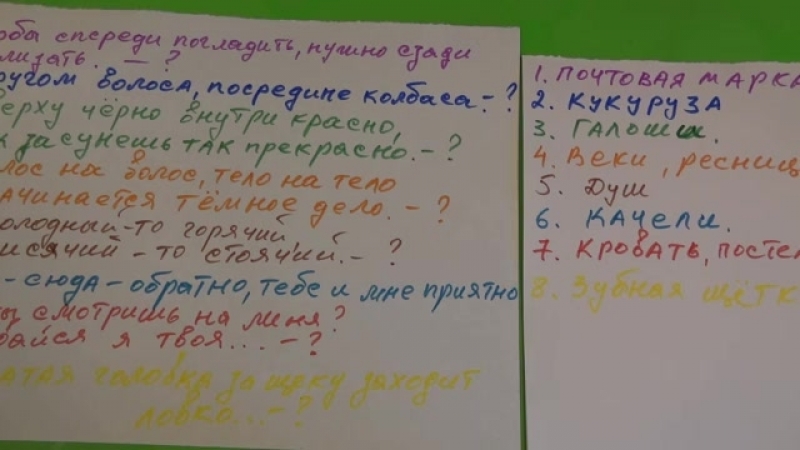 обы спереди погладить, нужно сзади
лизать. — ?
ругом волоса, посредине колбаса - ?
верху чёрно внутри красно,
к засунешь так прекрасно. - ?
лос на волос, тело на тело
ачинается тёмное дело. - ?
олодный - то горячий,
исячий - то стоячий. - ?
- сюда - обратно, тебе и мне приятно
ы смотришь на меня?
байся я твоя... - ?
атая головка за щеку заходит
ловко... - ?
1. Почтовая марка
2. Кукуруза
3. Галоши.
4. Веки, ресниц
5. Душ
6. Качели.
7. Кровать, постел
8. Зубная щётк